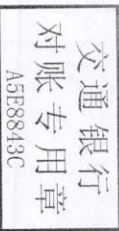 交通银行
对账专用章
A5E8843C